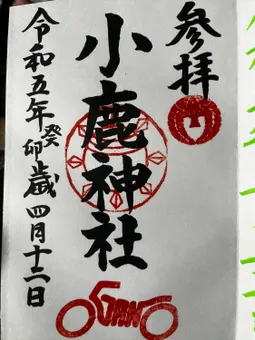 参拝
小鹿神社
令和五年癸卯歳四月十二日
OGANO